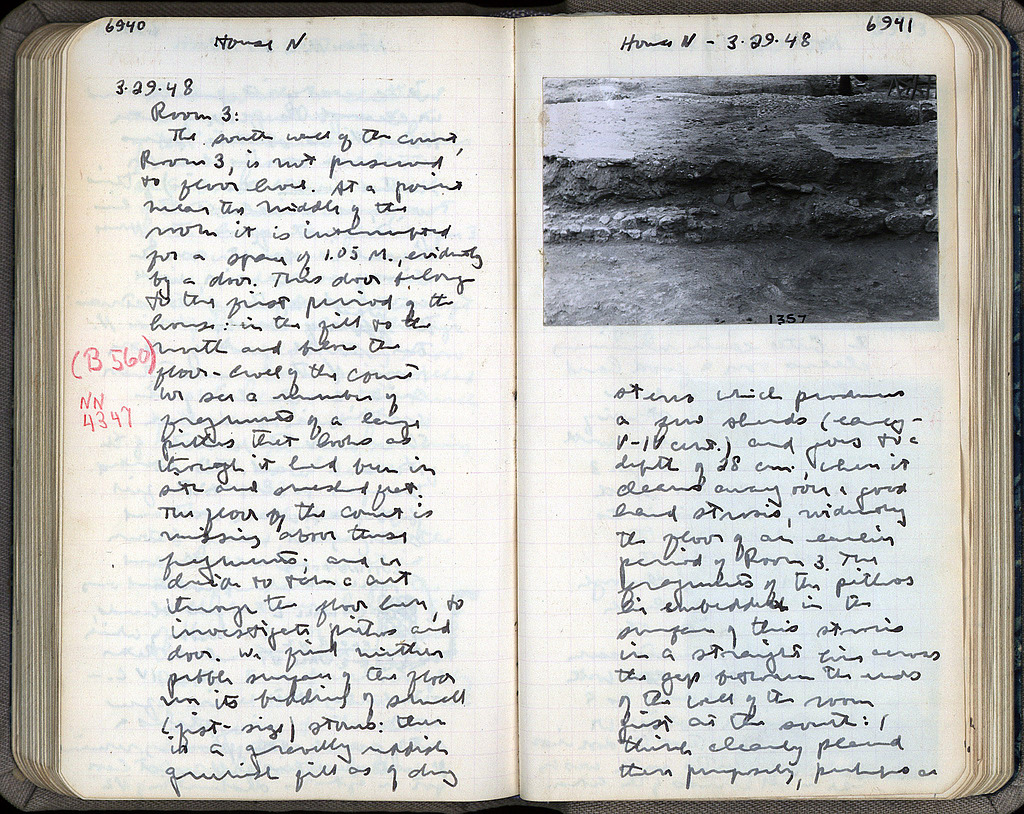 6940
House N
3.29.48
Room 3:
The south wall of the court,
Room 3, is not preserved
to floor level. At a point
near the middle of the
room it is interrupted
for a space of 1.05 M., evidently
by a door. This door belongs
to the first period of the
house: in the fill to the
north and below the
floor-level of the court
we see a number of
fragments of a large
pithos that looks as
though it had been in
situ and smashed flat.
The floor of the court is
missing above these
fragments; and we
decide to take a cut
through the floor here, to
investigate pithos and
door. We find neither
pebble surface of the floor
nor its bedding of small
(fist-size) stones: there
is a gravelly reddish
greenish fill as of dug
(B 560)
NN
4347
6941
House N - 3.29.48
1357
stereo which produces
a few sherds (early-
V-IV cent.) and goes to a
depth of 28 cm., when it
cleans away over a good
hard strosis, evidently
the floor of an earlier
period of Room 3. The
fragments of the pithos
lie embedded in the
surface of this strosis
in a straight line across
the gap between the ends
of the wall of the room
just at the south: I
think clearly placed
there purposely, perhaps as